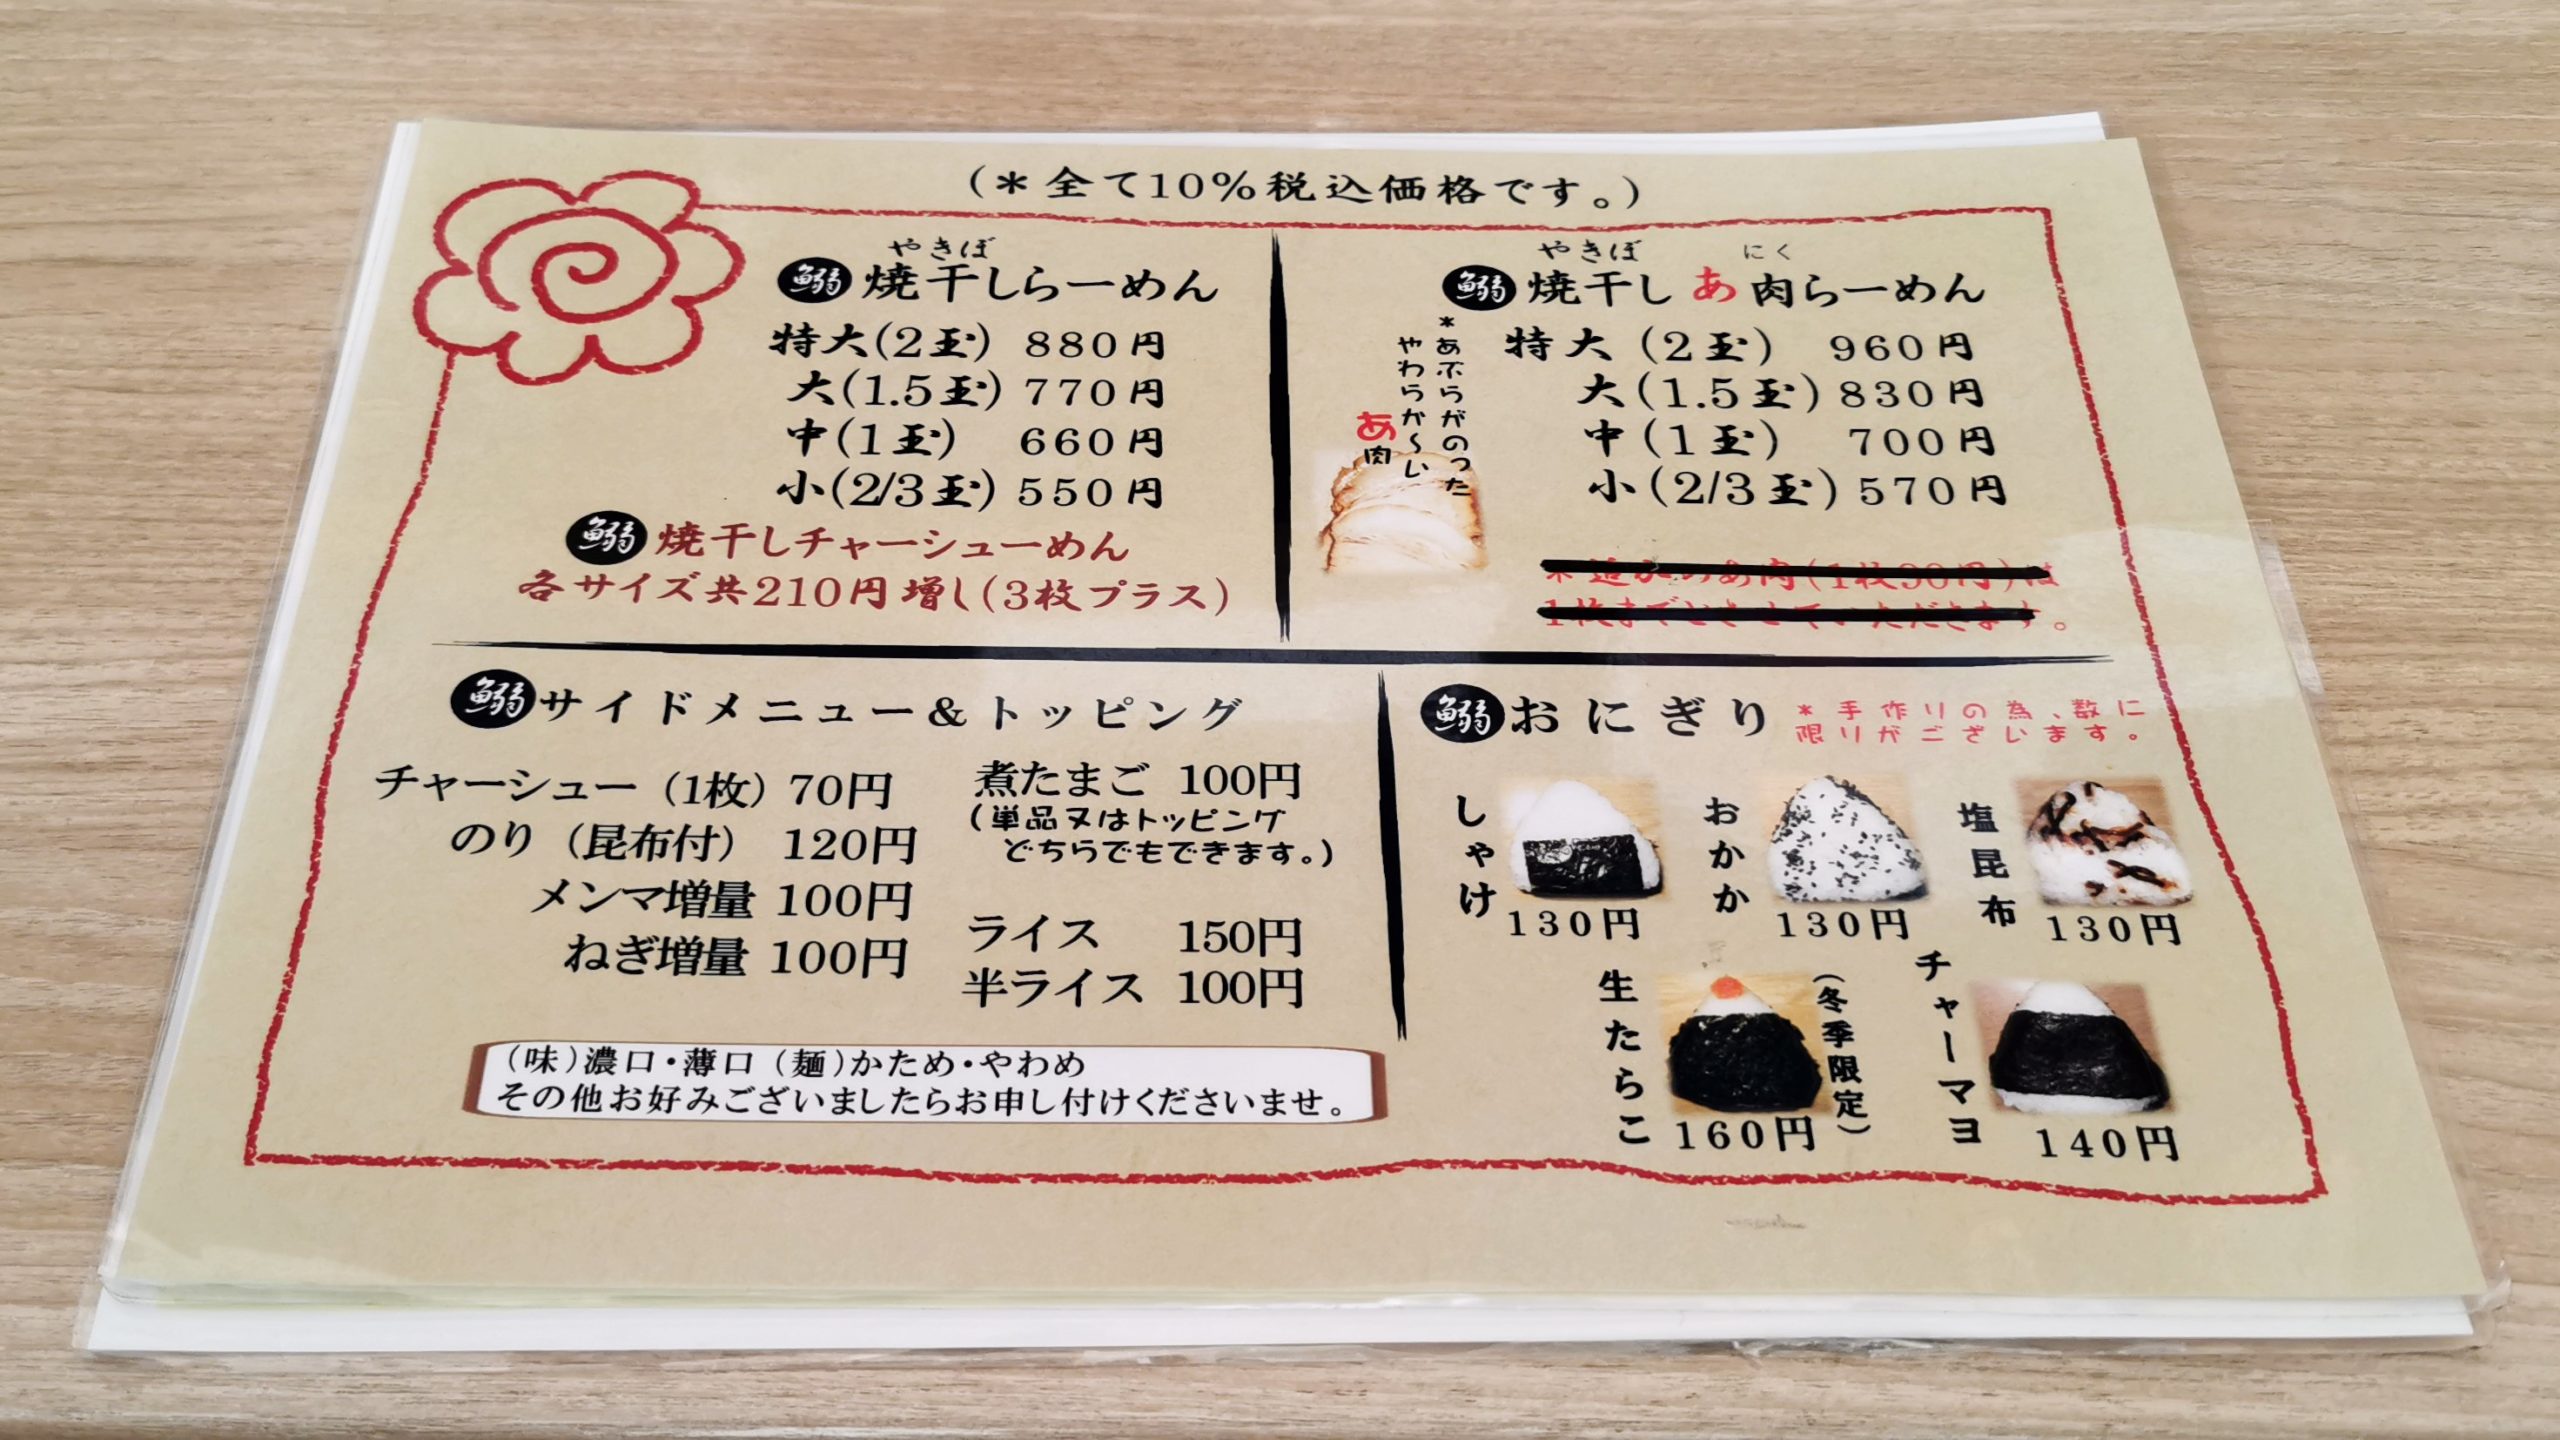 (＊全て10％税込価格です。)
やきぼ
鰯 焼干しらーめん
特大(2玉) 880円
大(1.5玉) 770円
中(1玉) 660円
小(2/3玉) 550円
鰯 焼干しチャーシューめん
各サイズ共210円増し(3枚プラス)
やきぼ にく
鰯 焼干し あ肉らーめん
特大(2玉) 960円
大(1.5玉) 830円
中(1玉) 700円
小(2/3玉) 570円
＊あぶらがのった
やわらか〜い
あ肉
＊追加のあ肉(1枚90円)は
1枚までとさせていただきます。
鰯 サイドメニュー＆トッピング
チャーシュー(1枚) 70円
のり(昆布付) 120円
メンマ増量 100円
ねぎ増量 100円
煮たまご 100円
(単品又はトッピング
どちらでもできます。)
ライス 150円
半ライス 100円
(味)濃口・薄口 (麺)かため・やわめ
その他お好みございましたらお申し付けくださいませ。
鰯 おにぎり
＊手作りの為、数に
限りがございます。
しゃけ
130円
おかか
130円
塩昆布
130円
生たらこ
(冬季限定)
160円
チャーマヨ
140円